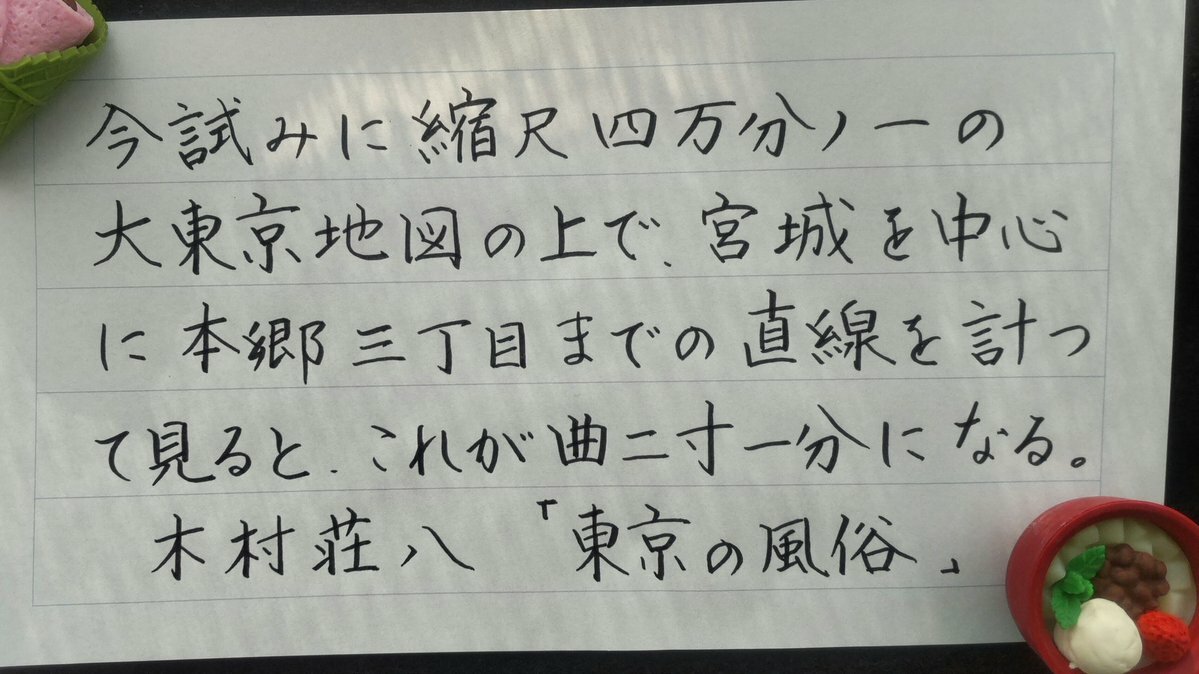 今試みに縮尺四万分ノ一の
大東京地図の上で、宮城を中心
に本郷三丁目までの直線を計つ
て見ると、これが曲二寸一分になる。
木村荘八 「東京の風俗」